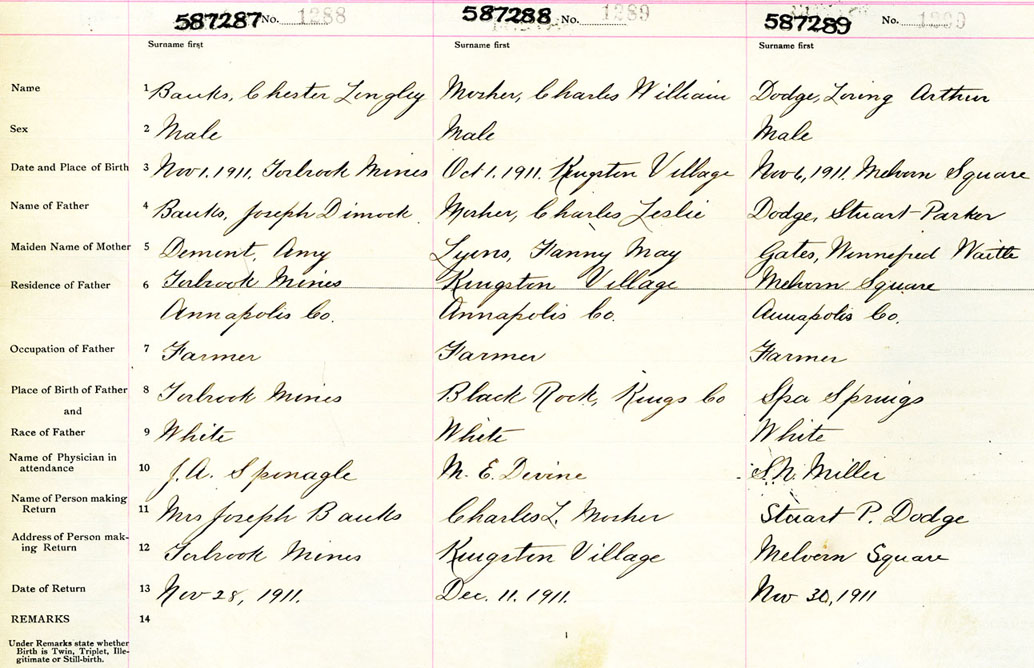 587287 No. 1288 587288 No. 1289 587289 No. 1290
Surname first Surname first Surname first
Name 1 Banks, Chester Longley Mosher, Charles William Dodge, Loring Arthur
Sex 2 Male Male Male
Date and Place of Birth 3 Nov 1, 1911, Torbrook Mines Oct 1. 1911. Kingston Village Nov 6, 1911. Melvern Square
Name of Father 4 Banks, Joseph Dimock. Mosher, Charles Leslie Dodge, Stuart-Parker
Maiden Name of Mother 5 Dement, Amy Lyons, Fanny May Gates, Winnefred
Residence of Father 6 Torbrook Mines Kingston Village Melvern Square
Annapolis Co. Annapolis Co. Annapolis Co.
Occupation of Father 7 Farmer Farmer Farmer
Place of Birth of Father 8 Torbrook Mines Black Rock, Kings Co Spa Springs
and
Race of Father 9 White White White
Name of Physician in
attendance 10 J.A. Sponagle M. E. Devine S.N. Miller
Name of Person making
Return 11 Mrs Joseph Banks Charles L. Mosher Stuart P. Dodge
Address of Person mak-
ing Return 12 Torbrook Mines Kingston Village Melvern Square
Date of Return 13 Nov 28, 1911. Dec. 11. 1911. Nov 30, 1911
REMARKS 14
Under Remarks state whether
Birth is Twin, Triplet, Ille-
gitimate or Still-birth.